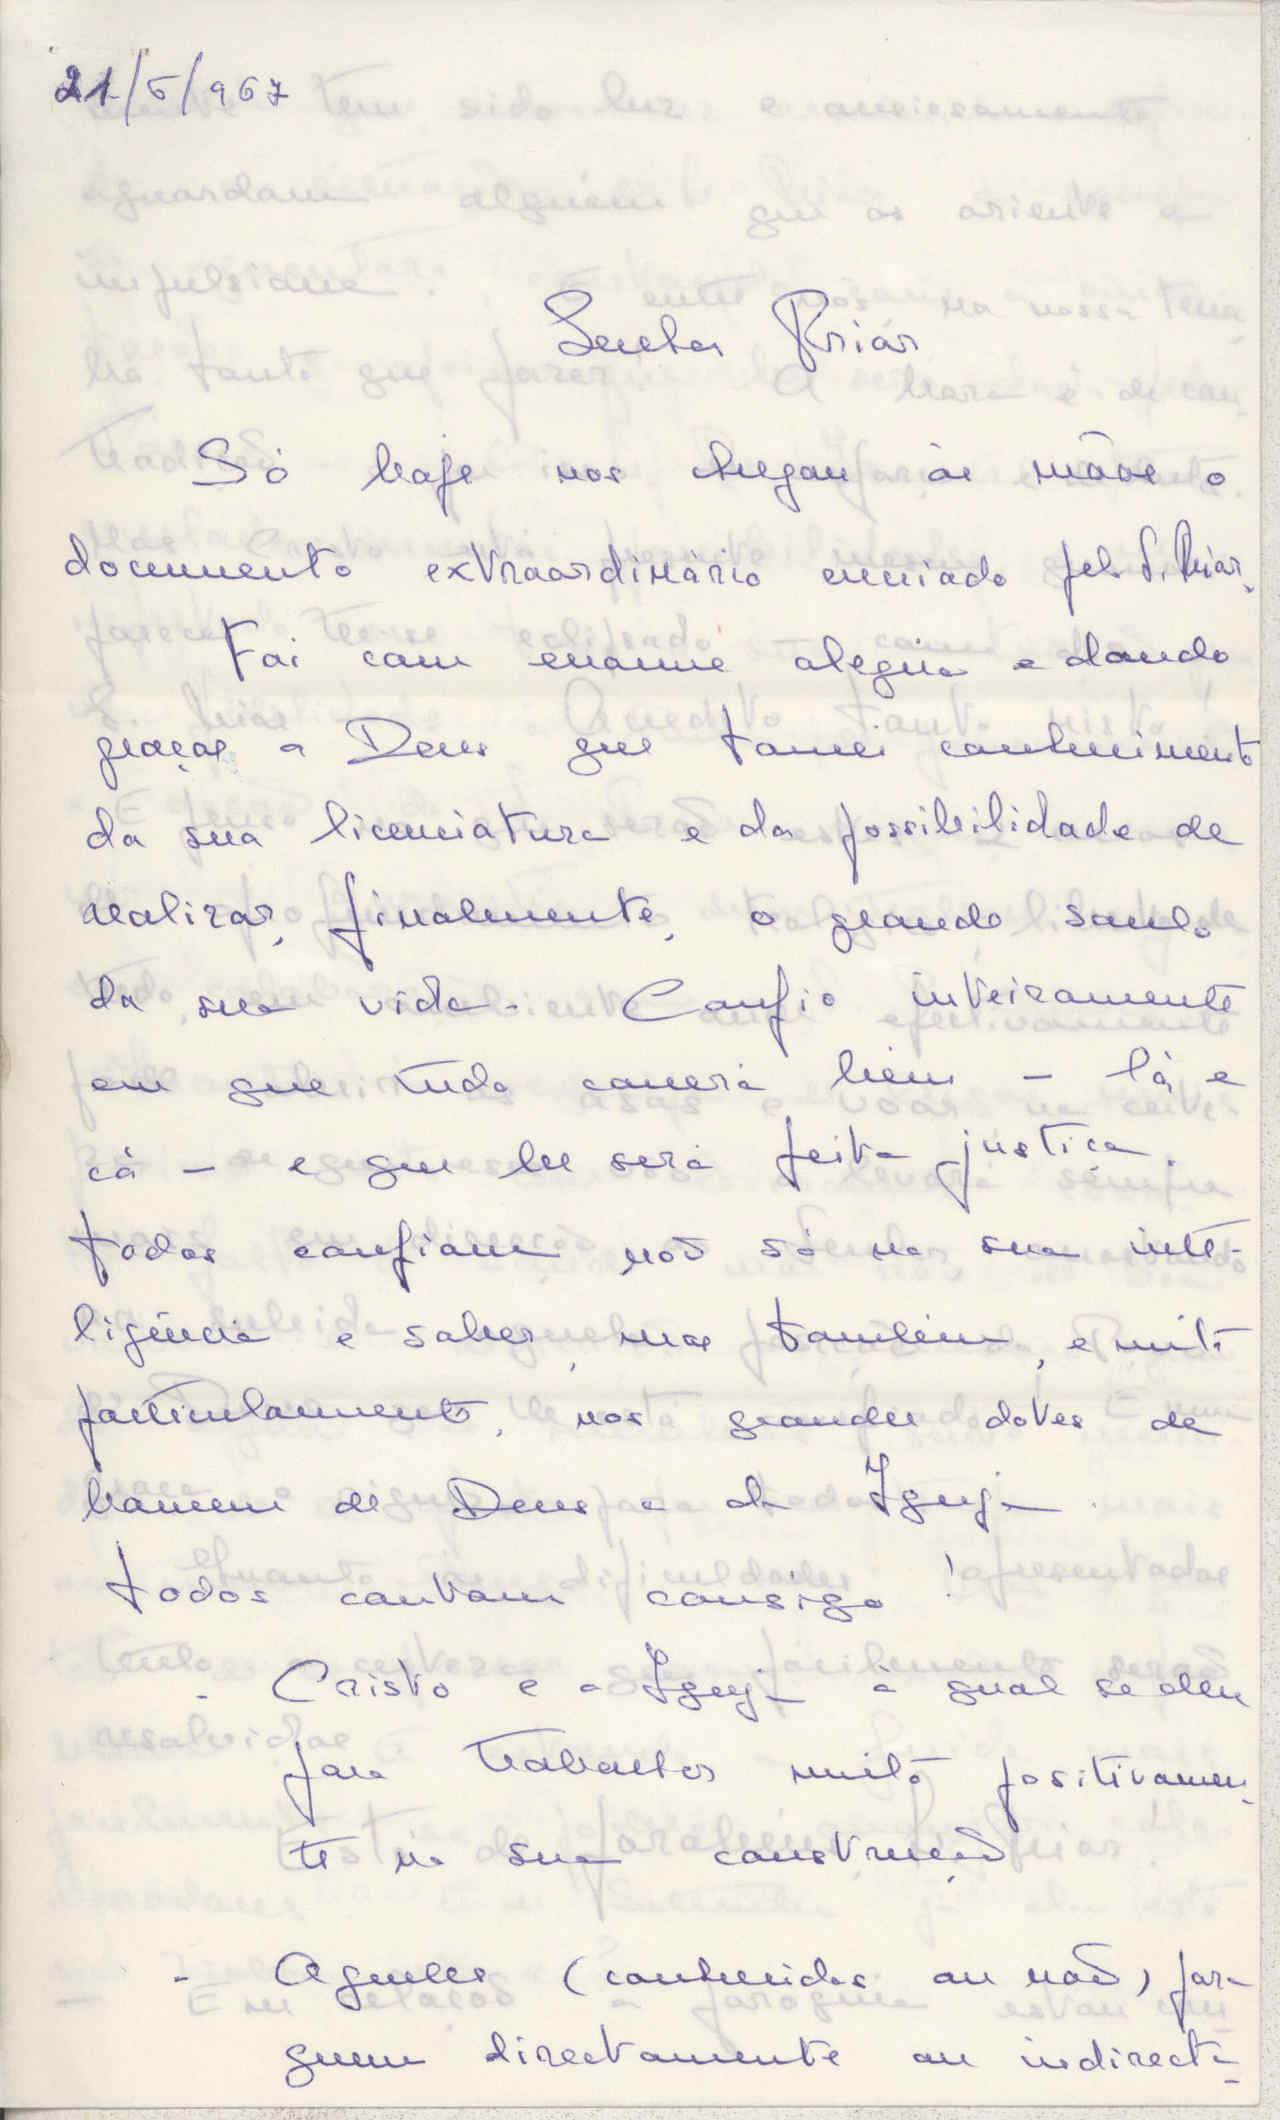 21/5/967
Senhor Prior
Só hoje nos chegou às mãos o
documento extraordinário enviado pelo S. Prior.
Foi com enorme alegria e dando
graças a Deus que tomei conhecimento
da sua licenciatura e da possibilidade de
realizar, finalmente, o grande sonho
da sua vida. Confio inteiramente
em que tudo correrá bem – lá e
cá – e que lhe será feita justiça.
Todos confiam não só na sua inte-
ligência e saber, mas também, e muito
particularmente, nos grandes dotes de
homem de Deus e da Igreja.
Todos contam consigo!
- Cristo e a Igreja à qual se deu
para trabalhar muito positivamen-
te na sua construção
- Aqueles (conhecidos ou não) para
quem directamente ou indirecta-